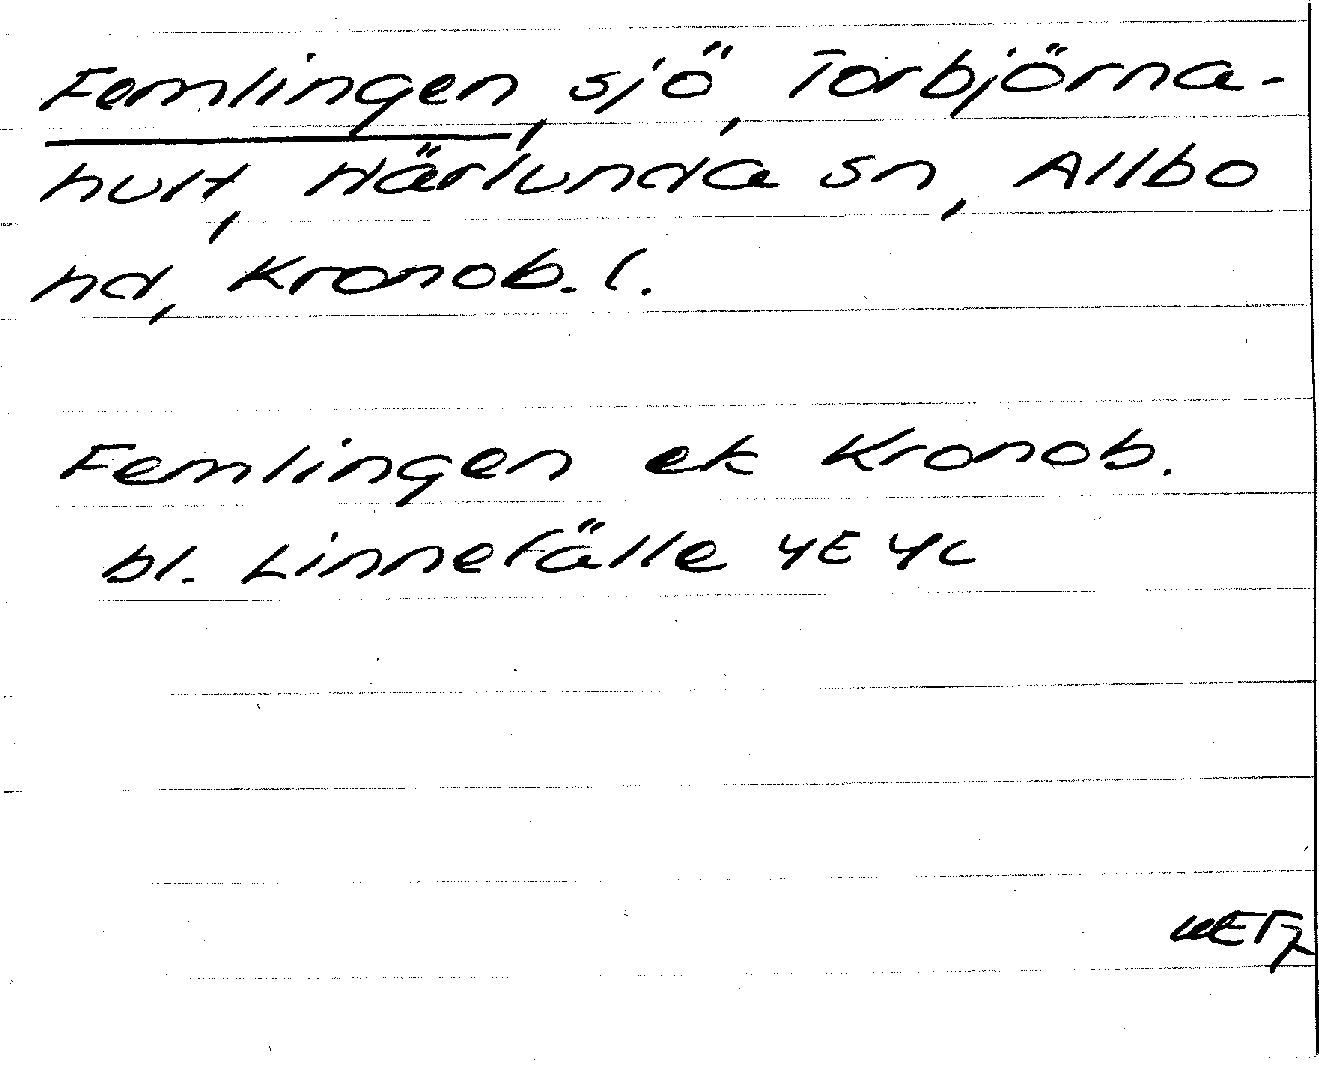 Femlingen, sjö, Torbjörna-
hult, Härlunda sn, Allbo
hd, Kronob. l.
Femlingen ek Kronob.
bl. Linnefälle 4E 4c